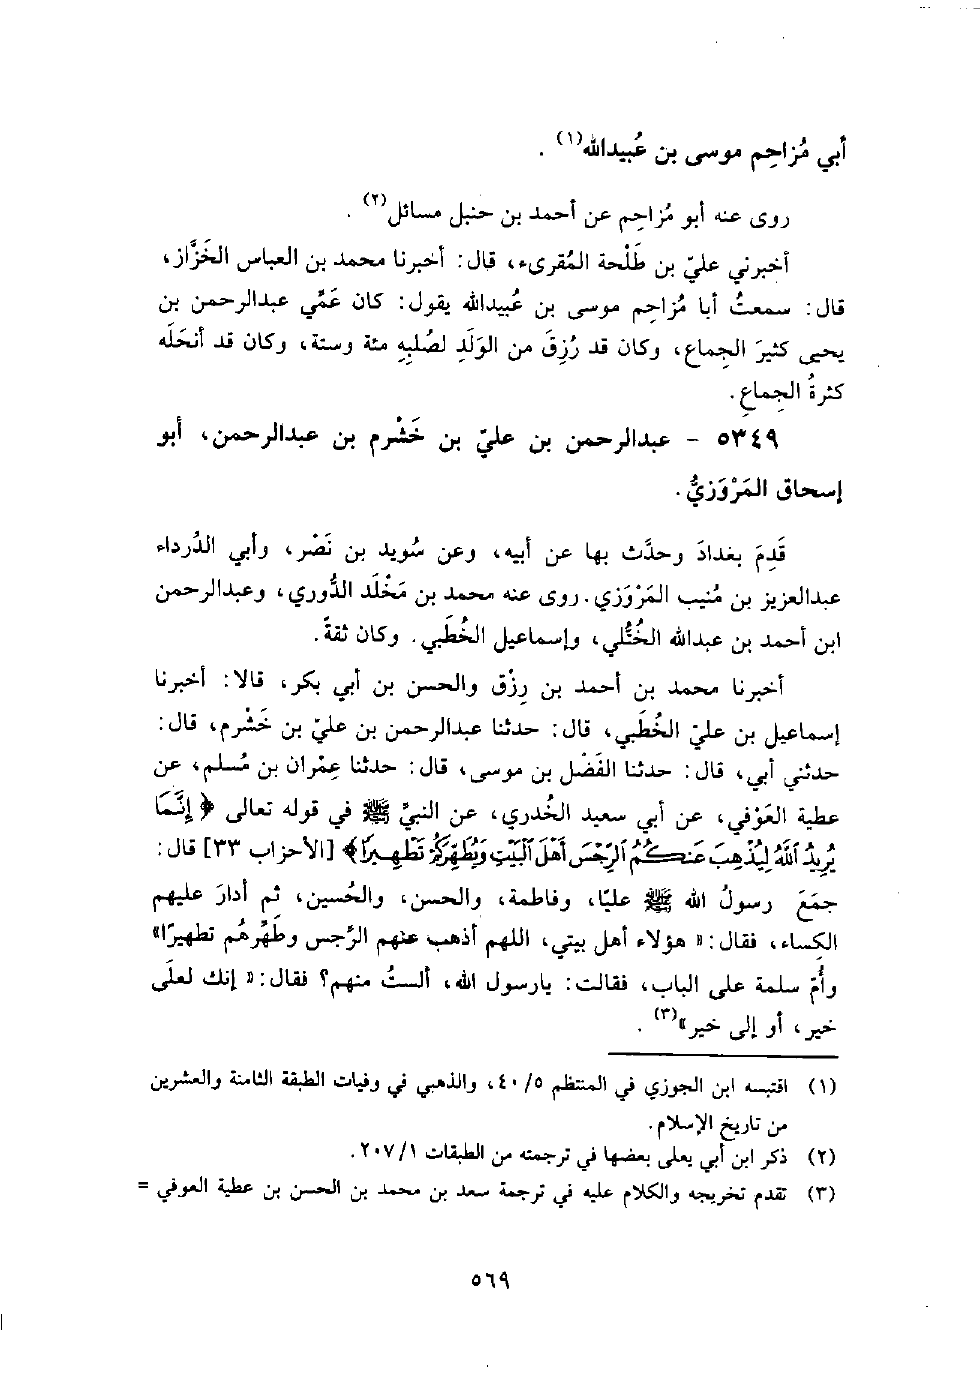 أبي مُزاحِم موسى بن عُبيدالله(١) .
روى عنه أبو مُزاحِم عن أحمد بن حنبل مسائل(٢) .
أخبرني عليّ بن طَلْحة المُقرىء، قال: أخبرنا محمد بن العباس الخَزَّاز،
قال: سمعتُ أبا مُزاحِم موسى بن عُبيدالله يقول: كان عَمِّي عبدالرحمن بن
يحيى كثيرَ الجِماع، وكان قد رُزِقَ من الوَلَدِ لصُلبِهِ مئة وستة، وكان قد أنحَلَه
كثرةُ الجِماعِ.
٥٣٤٩ - عبدالرحمن بن عليّ بن خَشْرم بن عبدالرحمن، أبو
إسحاق المَرْوَزيُّ.
قَدِمَ بغدادَ وحدَّث بها عن أبيه، وعن سُويد بن نَصْر، وأبي الدَّرداء
عبدالعزيز بن مُنيب المَرْوَزي. روى عنه محمد بن مَخْلَد الدُّوري، وعبدالرحمن
ابن أحمد بن عبدالله الخُتُّلي، وإسماعيل الخُطَبي. وكان ثقةً.
أخبرنا محمد بن أحمد بن رِزْق والحسن بن أبي بكر، قالا: أخبرنا
إسماعيل بن عليّ الخُطَبي، قال: حدثنا عبدالرحمن بن عليّ بن خَشْرم، قال:
حدثني أبي، قال: حدثنا الفَضْل بن موسى، قال: حدثنا عِمْران بن مُسلم، عن
عطية العَوْفي، عن أبي سعيد الخُدري، عن النبيِّ ﷺ في قوله تعالى ﴿ إِنَّمَا
يُرِيدُ ٱللَّهُ لِيُذْهِبَ عَنكُمُ ٱلرِّجْسَ أَهْلَ ٱلْبَيْتِ وَيُطَهِّرَكُمْ تَطْهِيرًا﴾ [الأحزاب ٣٣] قال:
جمَعَ رسولُ الله ﷺ عليًا، وفاطمة، والحسن، والحُسين، ثم أدارَ عليهم
الكِساء، فقال: «هؤلاء أهل بيتي، اللهم أذهب عنهم الرِّجس وطَهِّرهُم تطهيرًا»
وأُمّ سلمة على الباب، فقالت: يارسول الله، ألستُ منهم؟ فقال: «إنك لعلَى
خير، أو إلى خير»(٣) .
(١) اقتبسه ابن الجوزي في المنتظم ٥/ ٤٠، والذهبي في وفيات الطبقة الثامنة والعشرين
من تاريخ الإسلام.
(٢) ذكر ابن أبي يعلى بعضها في ترجمته من الطبقات ١/ ٢٠٧.
(٣) تقدم تخريجه والكلام عليه في ترجمة سعد بن محمد بن الحسن بن عطية العوفي =
٥٦٩